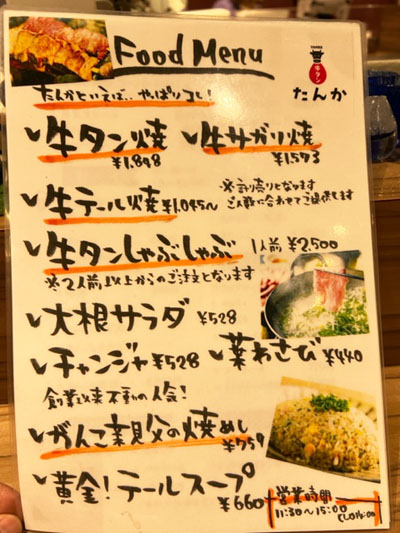 Food Menu
牛タン
たんか
たんかといえば、やっぱりコレ!
牛タン焼
¥1,848
牛サガリ焼
¥1,573
牛テール焼 ¥1,045〜
※計り売りとなります
ご人数に合わせてご提供します
牛タンしゃぶしゃぶ 1人前 ¥2,500
※2人前以上からのご注文となります
大根サラダ ¥528
チャンジャ ¥528
葉わさび ¥440
創業以来不動の人気!
がんこ親父の焼めし
¥759
黄金!テールスープ
¥660
営業時間
11:30〜15:00
(LO14:00)